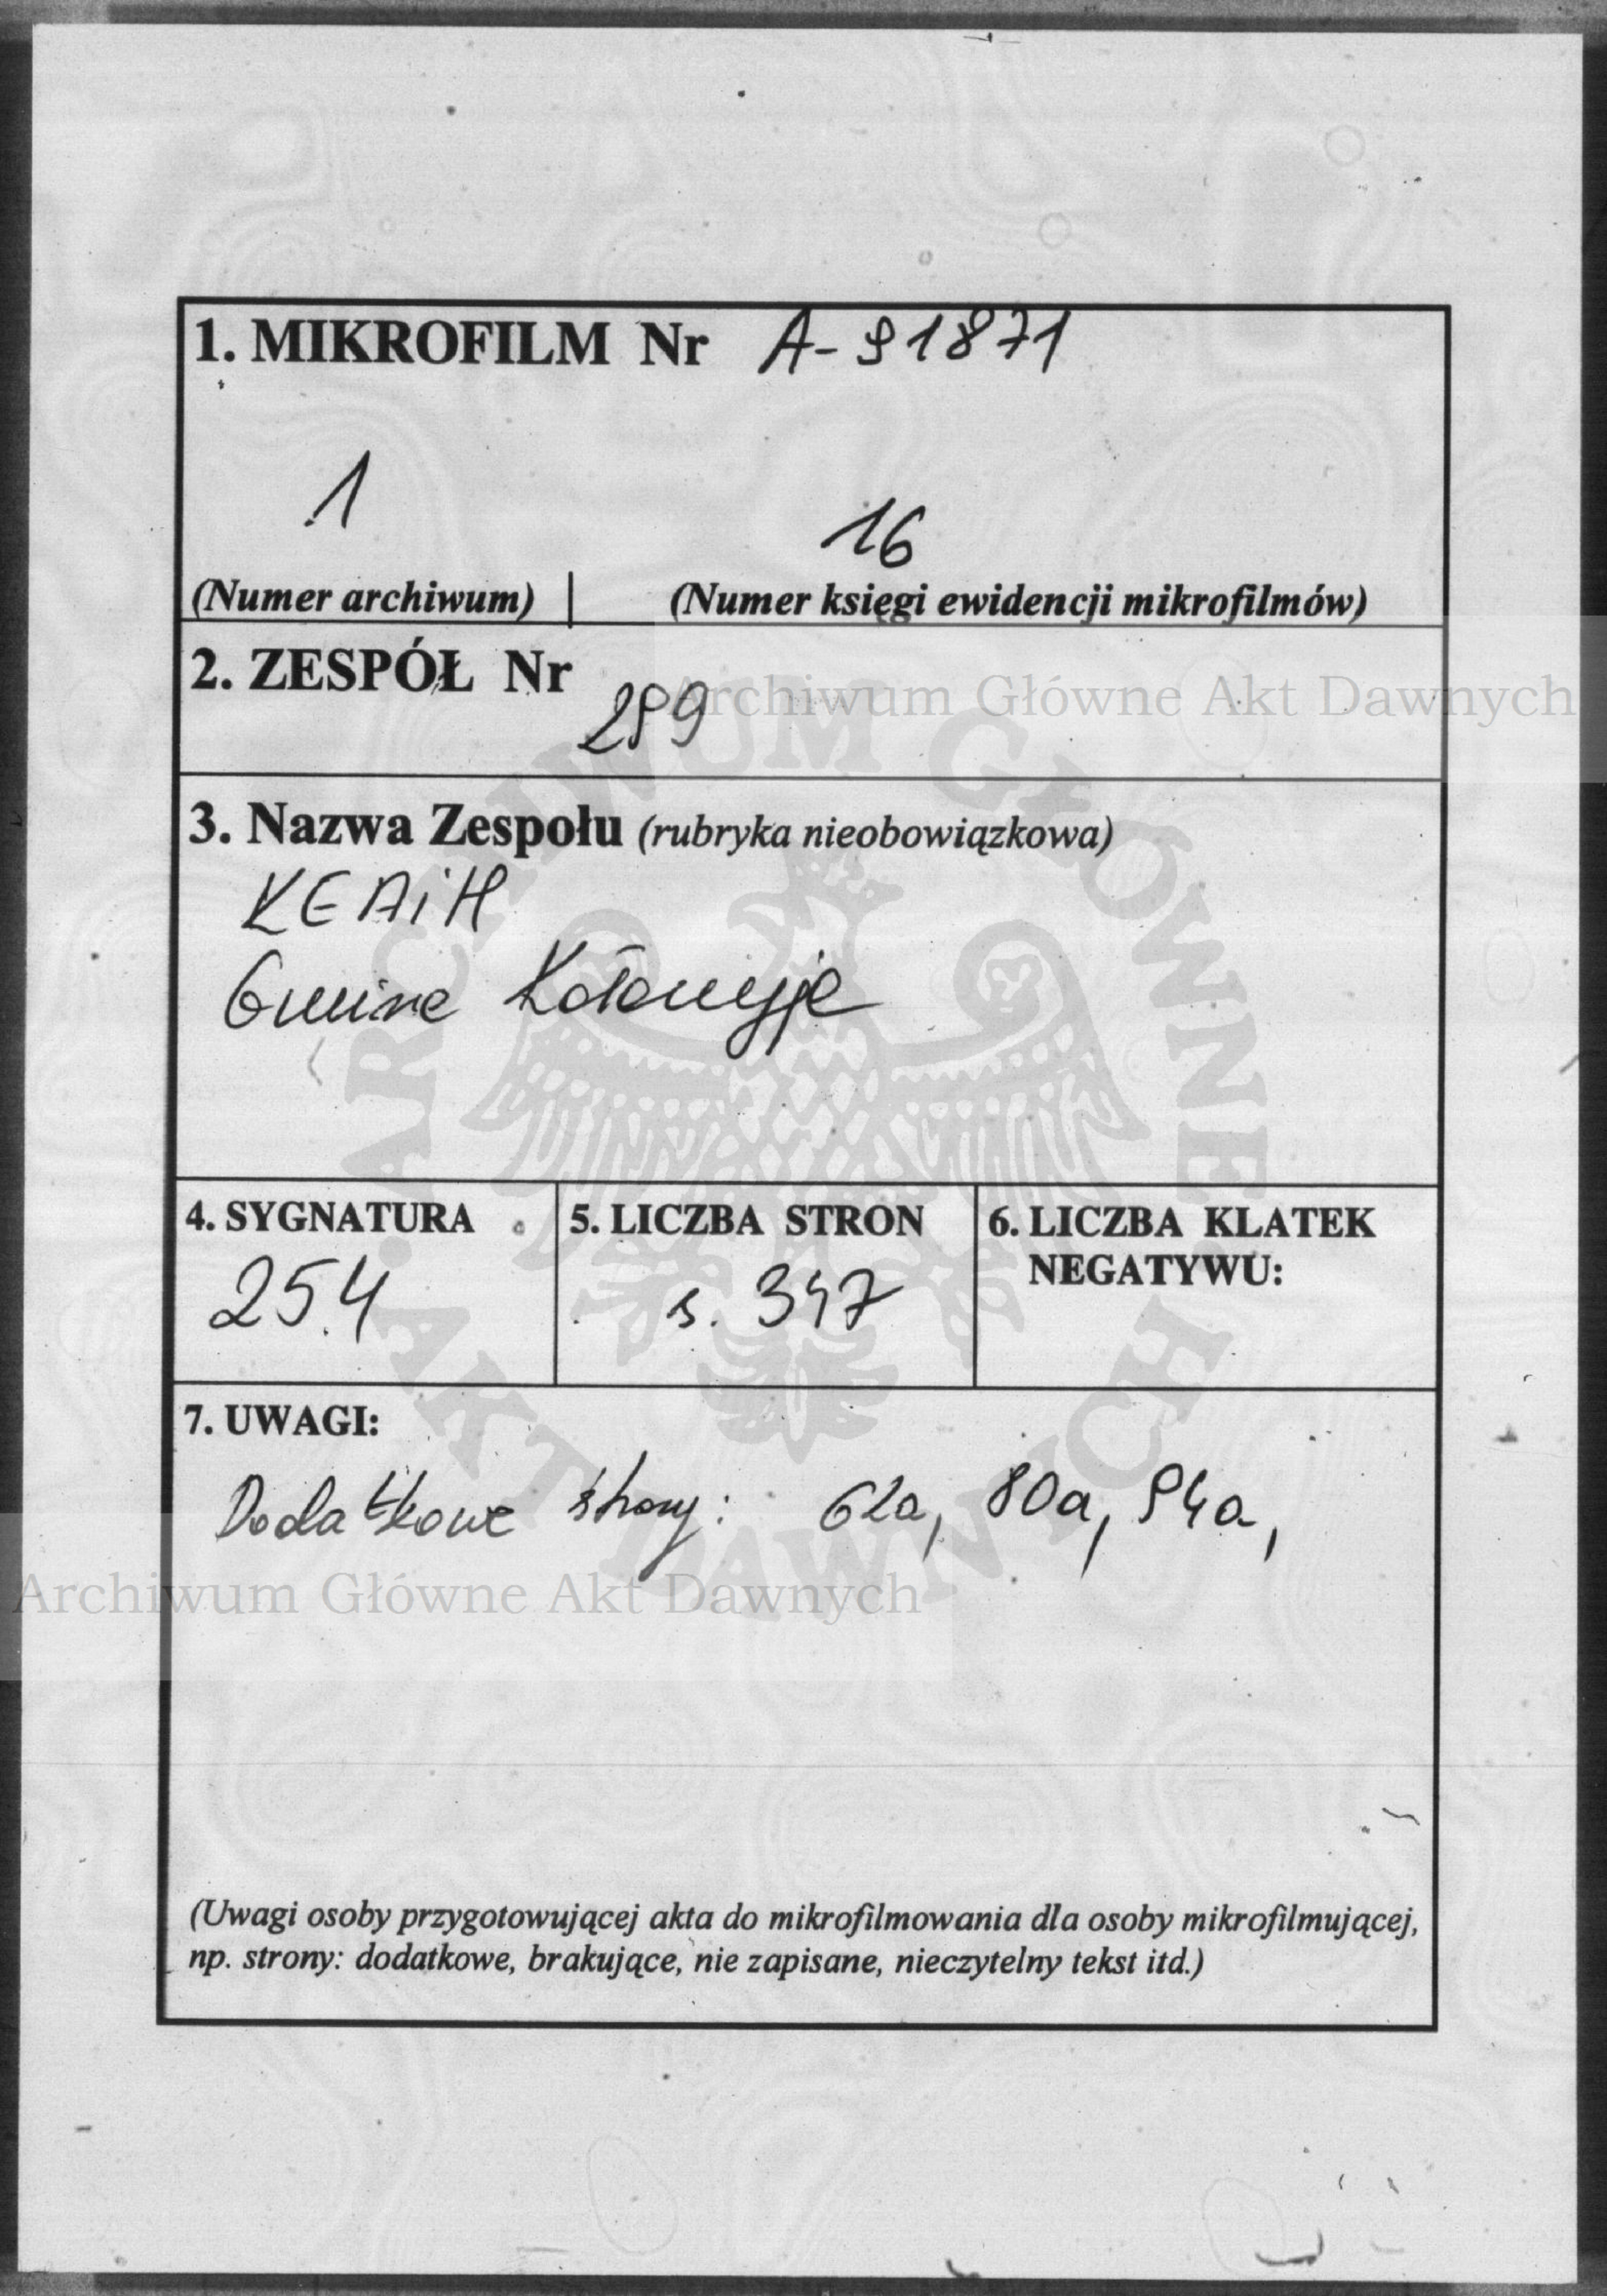 1. MIKROFILM Nr A-91871
1 16
(Numer archiwum) | (Numer księgi ewidencji mikrofilmów)
2. ZESPÓŁ Nr 299
Archiwum Główne Akt Dawnych
3. Nazwa Zespołu (rubryka nieobowiązkowa)
Gmina Kołomyja
4. SYGNATURA
254
5. LICZBA STRON
s. 347
6. LICZBA KLATEK
NEGATYWU:
7. UWAGI:
Dodatkowe strony: 62a, 80a, 94a,
Archiwum Główne Akt Dawnych
(Uwagi osoby przygotowującej akta do mikrofilmowania dla osoby mikrofilmującej,
np. strony: dodatkowe, brakujące, nie zapisane, nieczytelny tekst itd.)
ARCHIWUM GŁÓWNE
AKT DAWNYCH